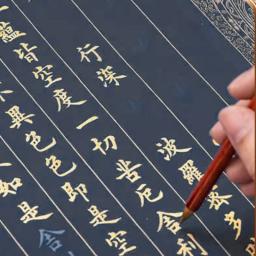 行深波羅蜜多
蘊皆空度一切苦厄舍利
不異色色即是空
如是舍